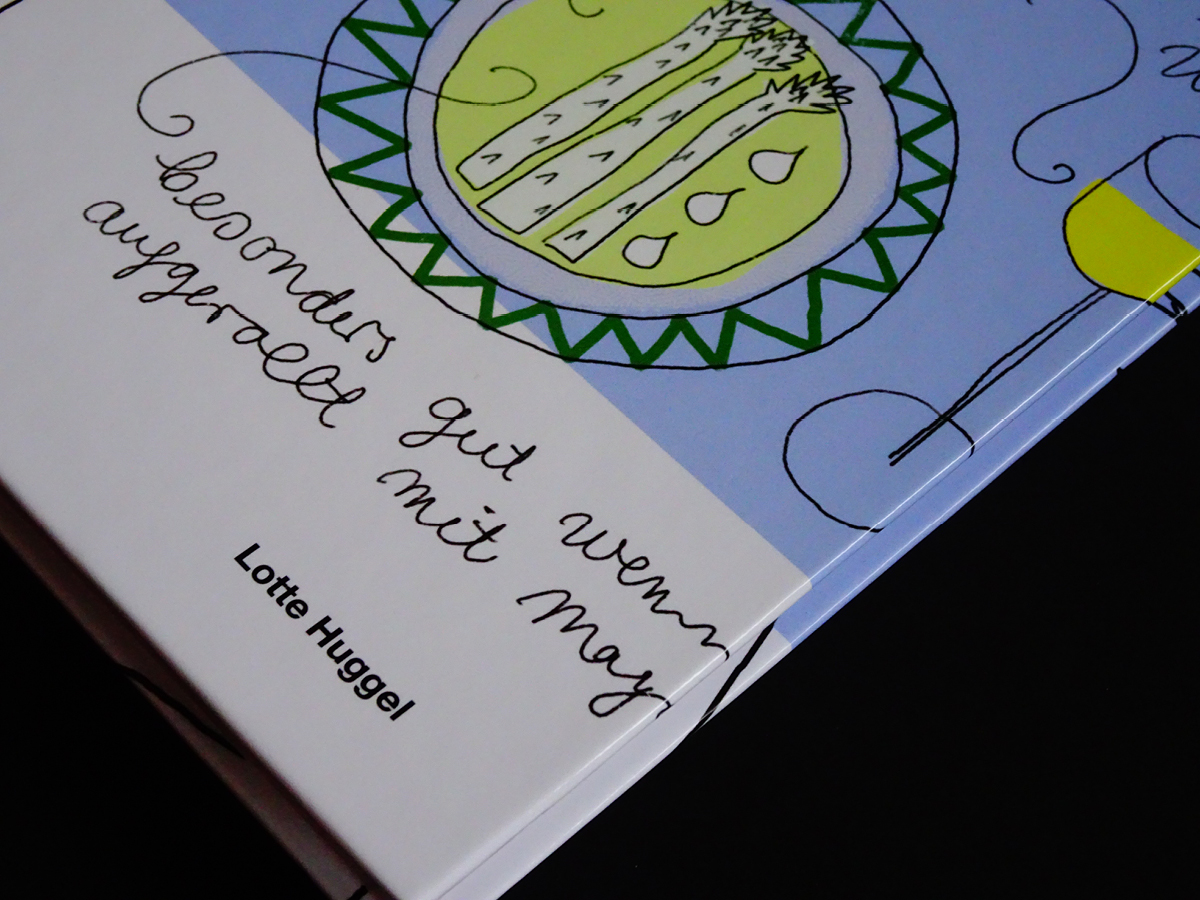 besonders gut wenn
aufgerollt mit may
Lotte Huggel